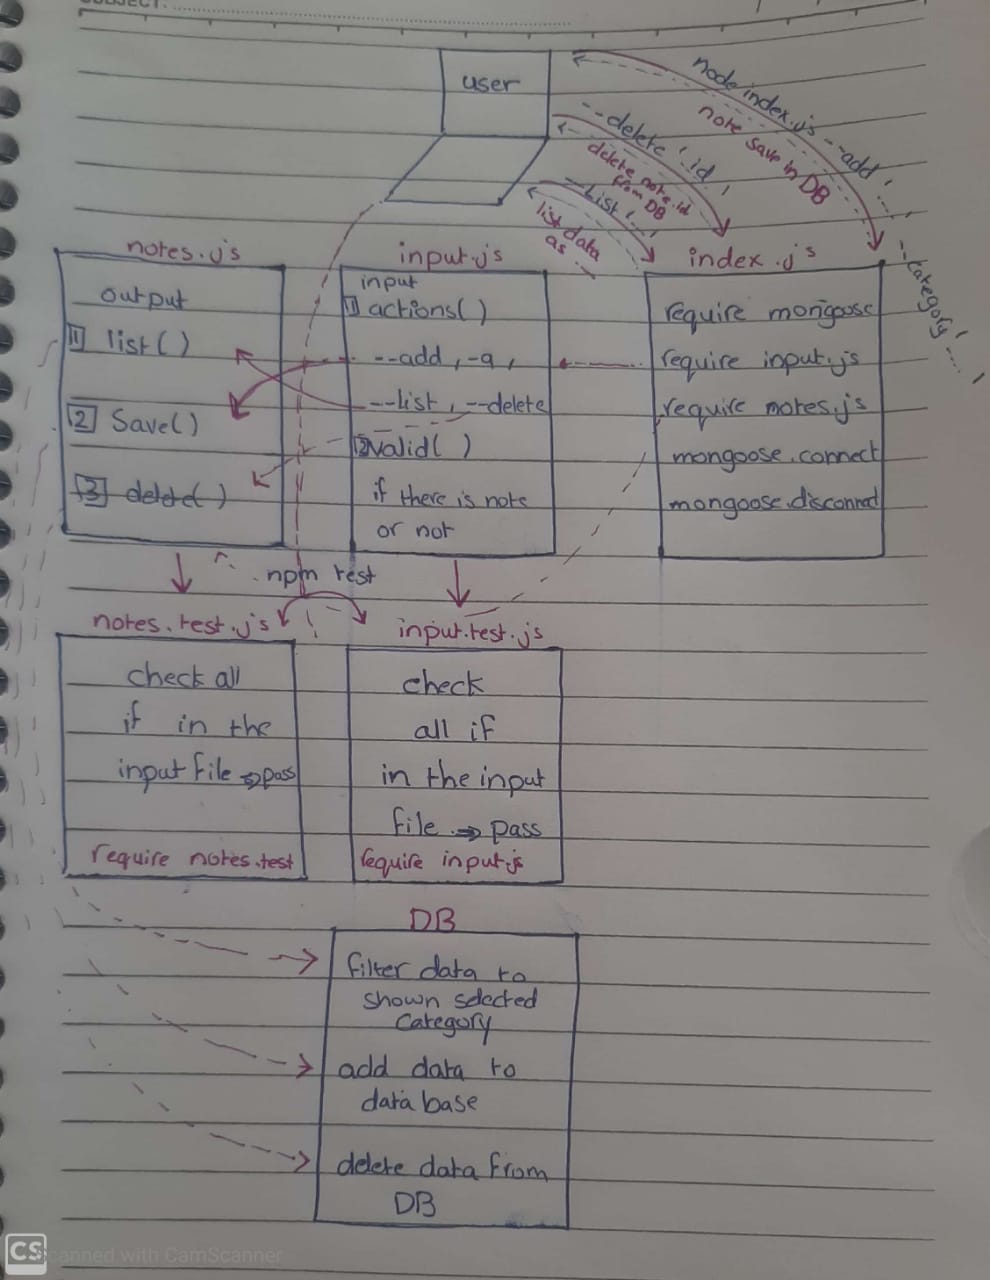 SUBJECT:
user
node index.js --add '....'
--category '....'
note save in DB
--delete 'id'
delete note.id
from DB
--List '...'
list data
as ...
notes.js
output
1 list()
2 Save()
3 delete()
input.js
input
1 actions()
--add, -a,
--list, --delete
2 valid()
if there is note
or not
index.js
require mongoose
require input.js
require notes.js
mongoose.connect
mongoose.disconnect
npm test
notes.test.js
check all
if in the
input file ⇒ pass
require notes.test
input.test.js
check
all if
in the input
file ⇒ pass
require input.js
DB
filter data to
shown selected
category
add data to
data base
delete data from
DB
CS
Scanned with CamScanner